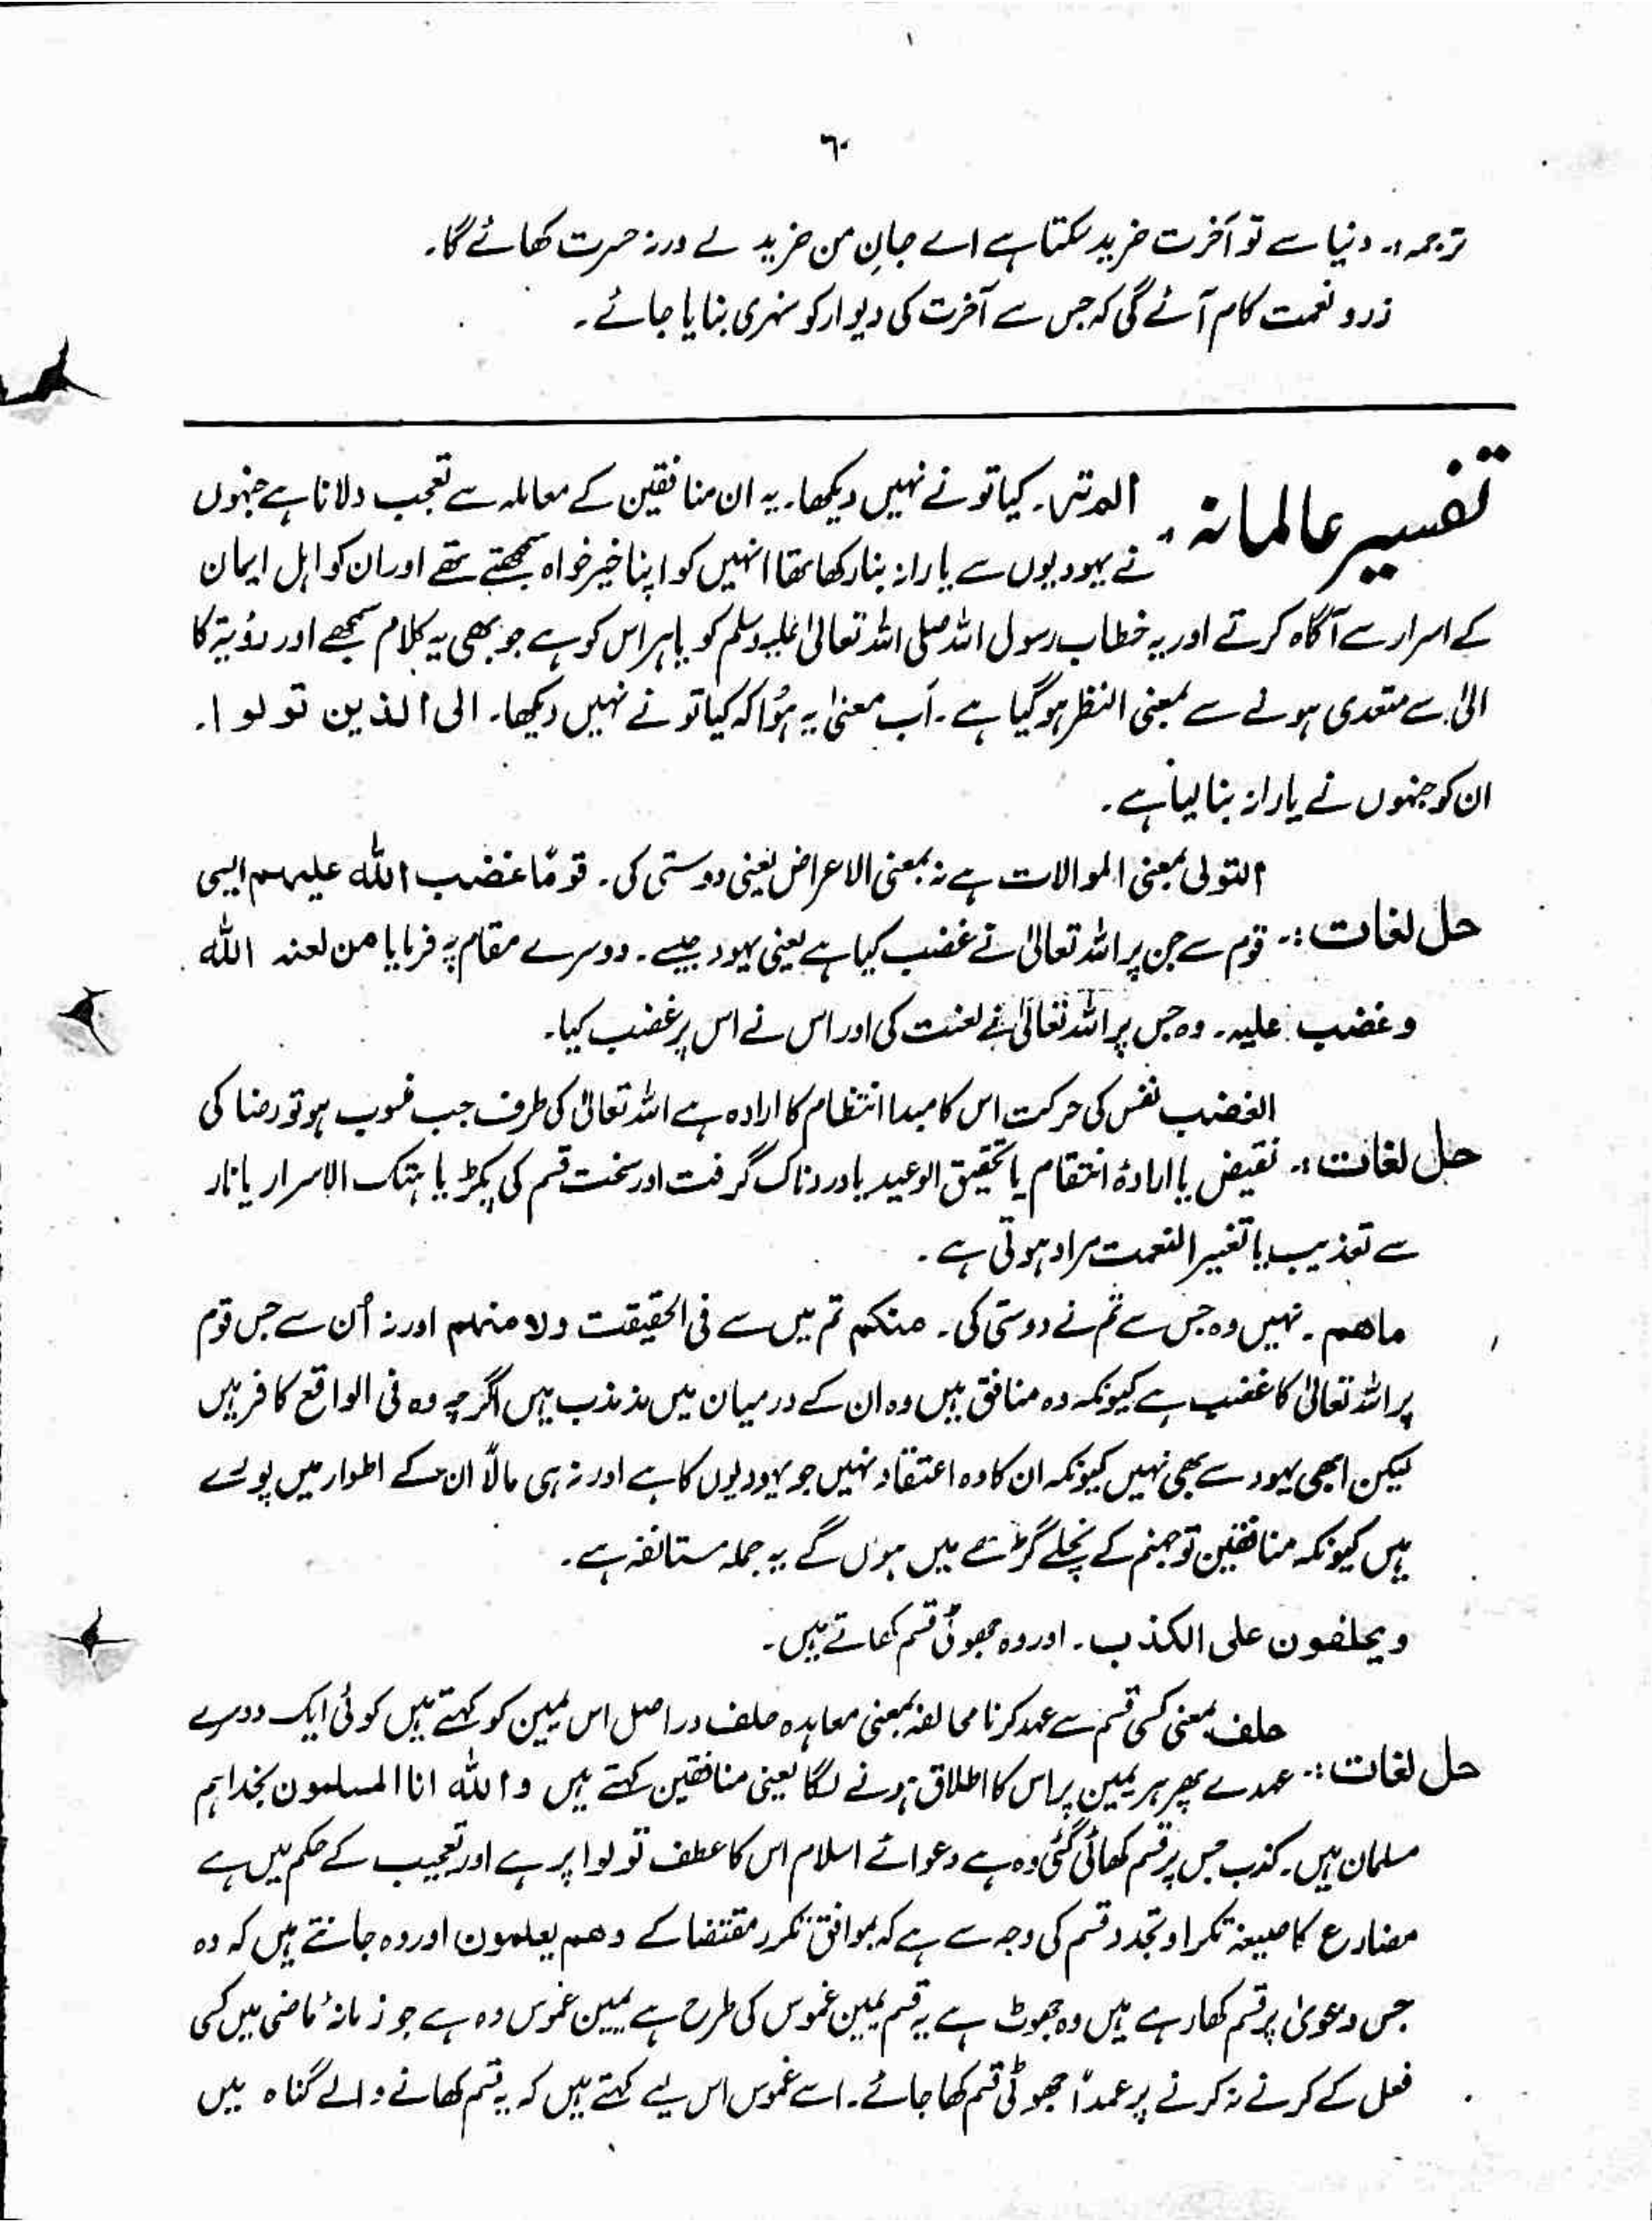 ٦٠
ترجمہ:۔ دنیا سے تو آخرت خرید سکتا ہے اے جانِ من خرید لے ورنہ حسرت کھائے گا۔
زر و نعمت کام آئے گی کہ جس سے آخرت کی دیوار کو سنہری بنایا جائے۔
تفسیر عالمانہ: الم تر۔ کیا تو نے نہیں دیکھا۔ یہ ان منافقین کے معاملہ سے تعجب دلانا ہے جنہوں
نے یہودیوں سے یارانہ بنا رکھا تھا انہیں کو اپنا خیر خواہ سمجھتے تھے اور ان کو اہل ایمان
کے اسرار سے آگاہ کرتے اور یہ خطاب رسول اللہ صلی اللہ تعالیٰ علیہ وسلم کو یا ہر اس کو ہے جو بھی یہ کلام سمجھے اور رؤیۃ کا
الیٰ سے متعدی ہونے سے بمعنی النظر ہو گیا ہے۔ اَب معنیٰ یہ ہُوا کہ کیا تو نے نہیں دیکھا۔ الی الذین تولوا۔
ان کو جنہوں نے یارانہ بنا لیا ہے۔
التولی بمعنی الموالات ہے نہ بمعنی الاعراض یعنی دوستی کی۔ قومًا غضب اللہ علیہم ایسی
حل لغات:۔ قوم سے جن پر اللہ تعالیٰ نے غضب کیا ہے یعنی یہود جیسے۔ دوسرے مقام پر فرمایا من لعنہ اللہ
وغضب علیہ۔ وہ جس پر اللہ تعالیٰ نے لعنت کی اور اس نے اس پر غضب کیا۔
الغضب نفس کی حرکت اس کا مبدا انتظام کا ارادہ ہے اللہ تعالیٰ کی طرف جب منسوب ہو تو رضا کی
حل لغات:۔ نقیض یا ارادۂ انتقام یا تحقیق الوعید یا دردناک گرفت اور سخت قسم کی پکڑ یا ہتک الاسرار یا نار
سے تعذیب یا تغییر النعمت مراد ہوتی ہے۔
ماھم۔ نہیں وہ جس سے تم نے دوستی کی۔ منکم تم میں سے فی الحقیقت ولا منہم اور نہ اُن سے جس قوم
پر اللہ تعالیٰ کا غضب ہے کیونکہ وہ منافق ہیں وہ ان کے درمیان میں مذبذب ہیں اگرچہ وہ فی الواقع کافر ہیں
لیکن ابھی یہود سے بھی نہیں کیونکہ ان کا وہ اعتقاد نہیں جو یہودیوں کا ہے اور نہ ہی مآلاً ان کے اطوار میں پورے
ہیں کیونکہ منافقین تو جہنم کے نچلے گڑھے میں ہوں گے یہ جملہ مستانفہ ہے۔
ویحلفون علی الکذب۔ اور وہ جھوٹی قسم کھاتے ہیں۔
حلف بمعنی کسی قسم سے عہد کرنا محالفہ بمعنی معاہدہ حلف دراصل اس یمین کو کہتے ہیں کوئی ایک دوسرے
حل لغات:۔ عہد لے پھر ہر یمین پر اس کا اطلاق ہونے لگا یعنی منافقین کہتے ہیں واللہ انا المسلمون بخدا ہم
مسلمان ہیں۔ کذب جس پر قسم کھائی گئی وہ ہے دعوائے اسلام اس کا عطف تولوا پر ہے اور تعجیب کے حکم میں ہے
مضارع کا صیغہ تکرار و تجدد قسم کی وجہ سے ہے کہ بموافق تکرر مقتضا کے وھم یعلمون اور وہ جانتے ہیں کہ وہ
جس دعویٰ پر قسم کھا رہے ہیں وہ جھوٹ ہے یہ قسم یمین غموس کی طرح ہے یمین غموس وہ ہے جو زمانۂ ماضی میں کسی
فعل کے کرنے نہ کرنے پر عمداً جھوٹی قسم کھا جائے۔ اسے غموس اس لیے کہتے ہیں کہ یہ قسم کھانے والے گناہ میں